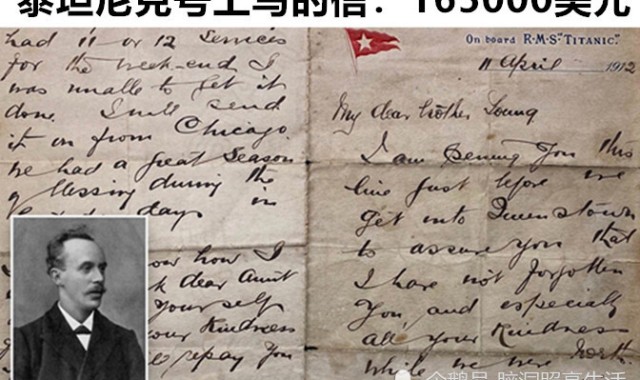 泰坦尼克号上写的信：165000美元
had 11 or 12 services
for the week-end I
was unable to get it
done. I will send
it on from Chicago.
We had a great season
of blessing during the
days in
how I
dear Aunt
yourself
your kindness
repay you
On board R.M.S "TITANIC."
11 April 1912
My dear brother Young
I am penning you this
line just before we
get into Queenstown
to assure you that
I have not forgotten
you and especially
all your kindness
while we were North.
企鹅号 脑洞照亮生活